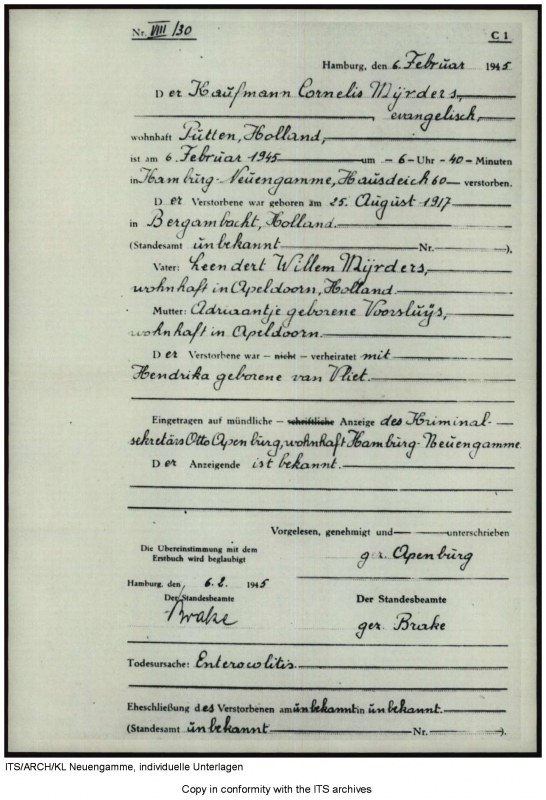 Nr. VIII/30 C 1
Hamburg, den 6. Februar 1945
Der Kaufmann Cornelis Mÿrders,
evangelisch,
wohnhaft Putten, Holland,
ist am 6. Februar 1945 um – 6 – Uhr – 40 – Minuten
in Hamburg-Neuengamme, Hausdeich 60 verstorben.
Der Verstorbene war geboren am 25. August 1917
in Bergambacht, Holland.
(Standesamt unbekannt Nr. ).
Vater: Leendert Willem Mÿrders,
wohnhaft in Apeldoorn, Holland.
Mutter: Adriaantje geborene Voorsluÿs,
wohnhaft in Apeldoorn.
Der Verstorbene war – nicht – verheiratet mit
Hendrika geborene van Vliet.
Eingetragen auf mündliche – schriftliche Anzeige des Kriminal-
sekretärs Otto Apenburg, wohnhaft Hamburg-Neuengamme.
Der Anzeigende ist bekannt.
Vorgelesen, genehmigt und unterschrieben
Die Übereinstimmung mit dem
Erstbuch wird beglaubigt
gez. Apenburg
Hamburg, den 6.2. 1945
Der Standesbeamte Der Standesbeamte
Brake gez. Brake
Todesursache: Enterocolitis.
Eheschließung des Verstorbenen am unbekannt in unbekannt.
(Standesamt unbekannt Nr. ).
ITS/ARCH/KL Neuengamme, individuelle Unterlagen
Copy in conformity with the ITS archives